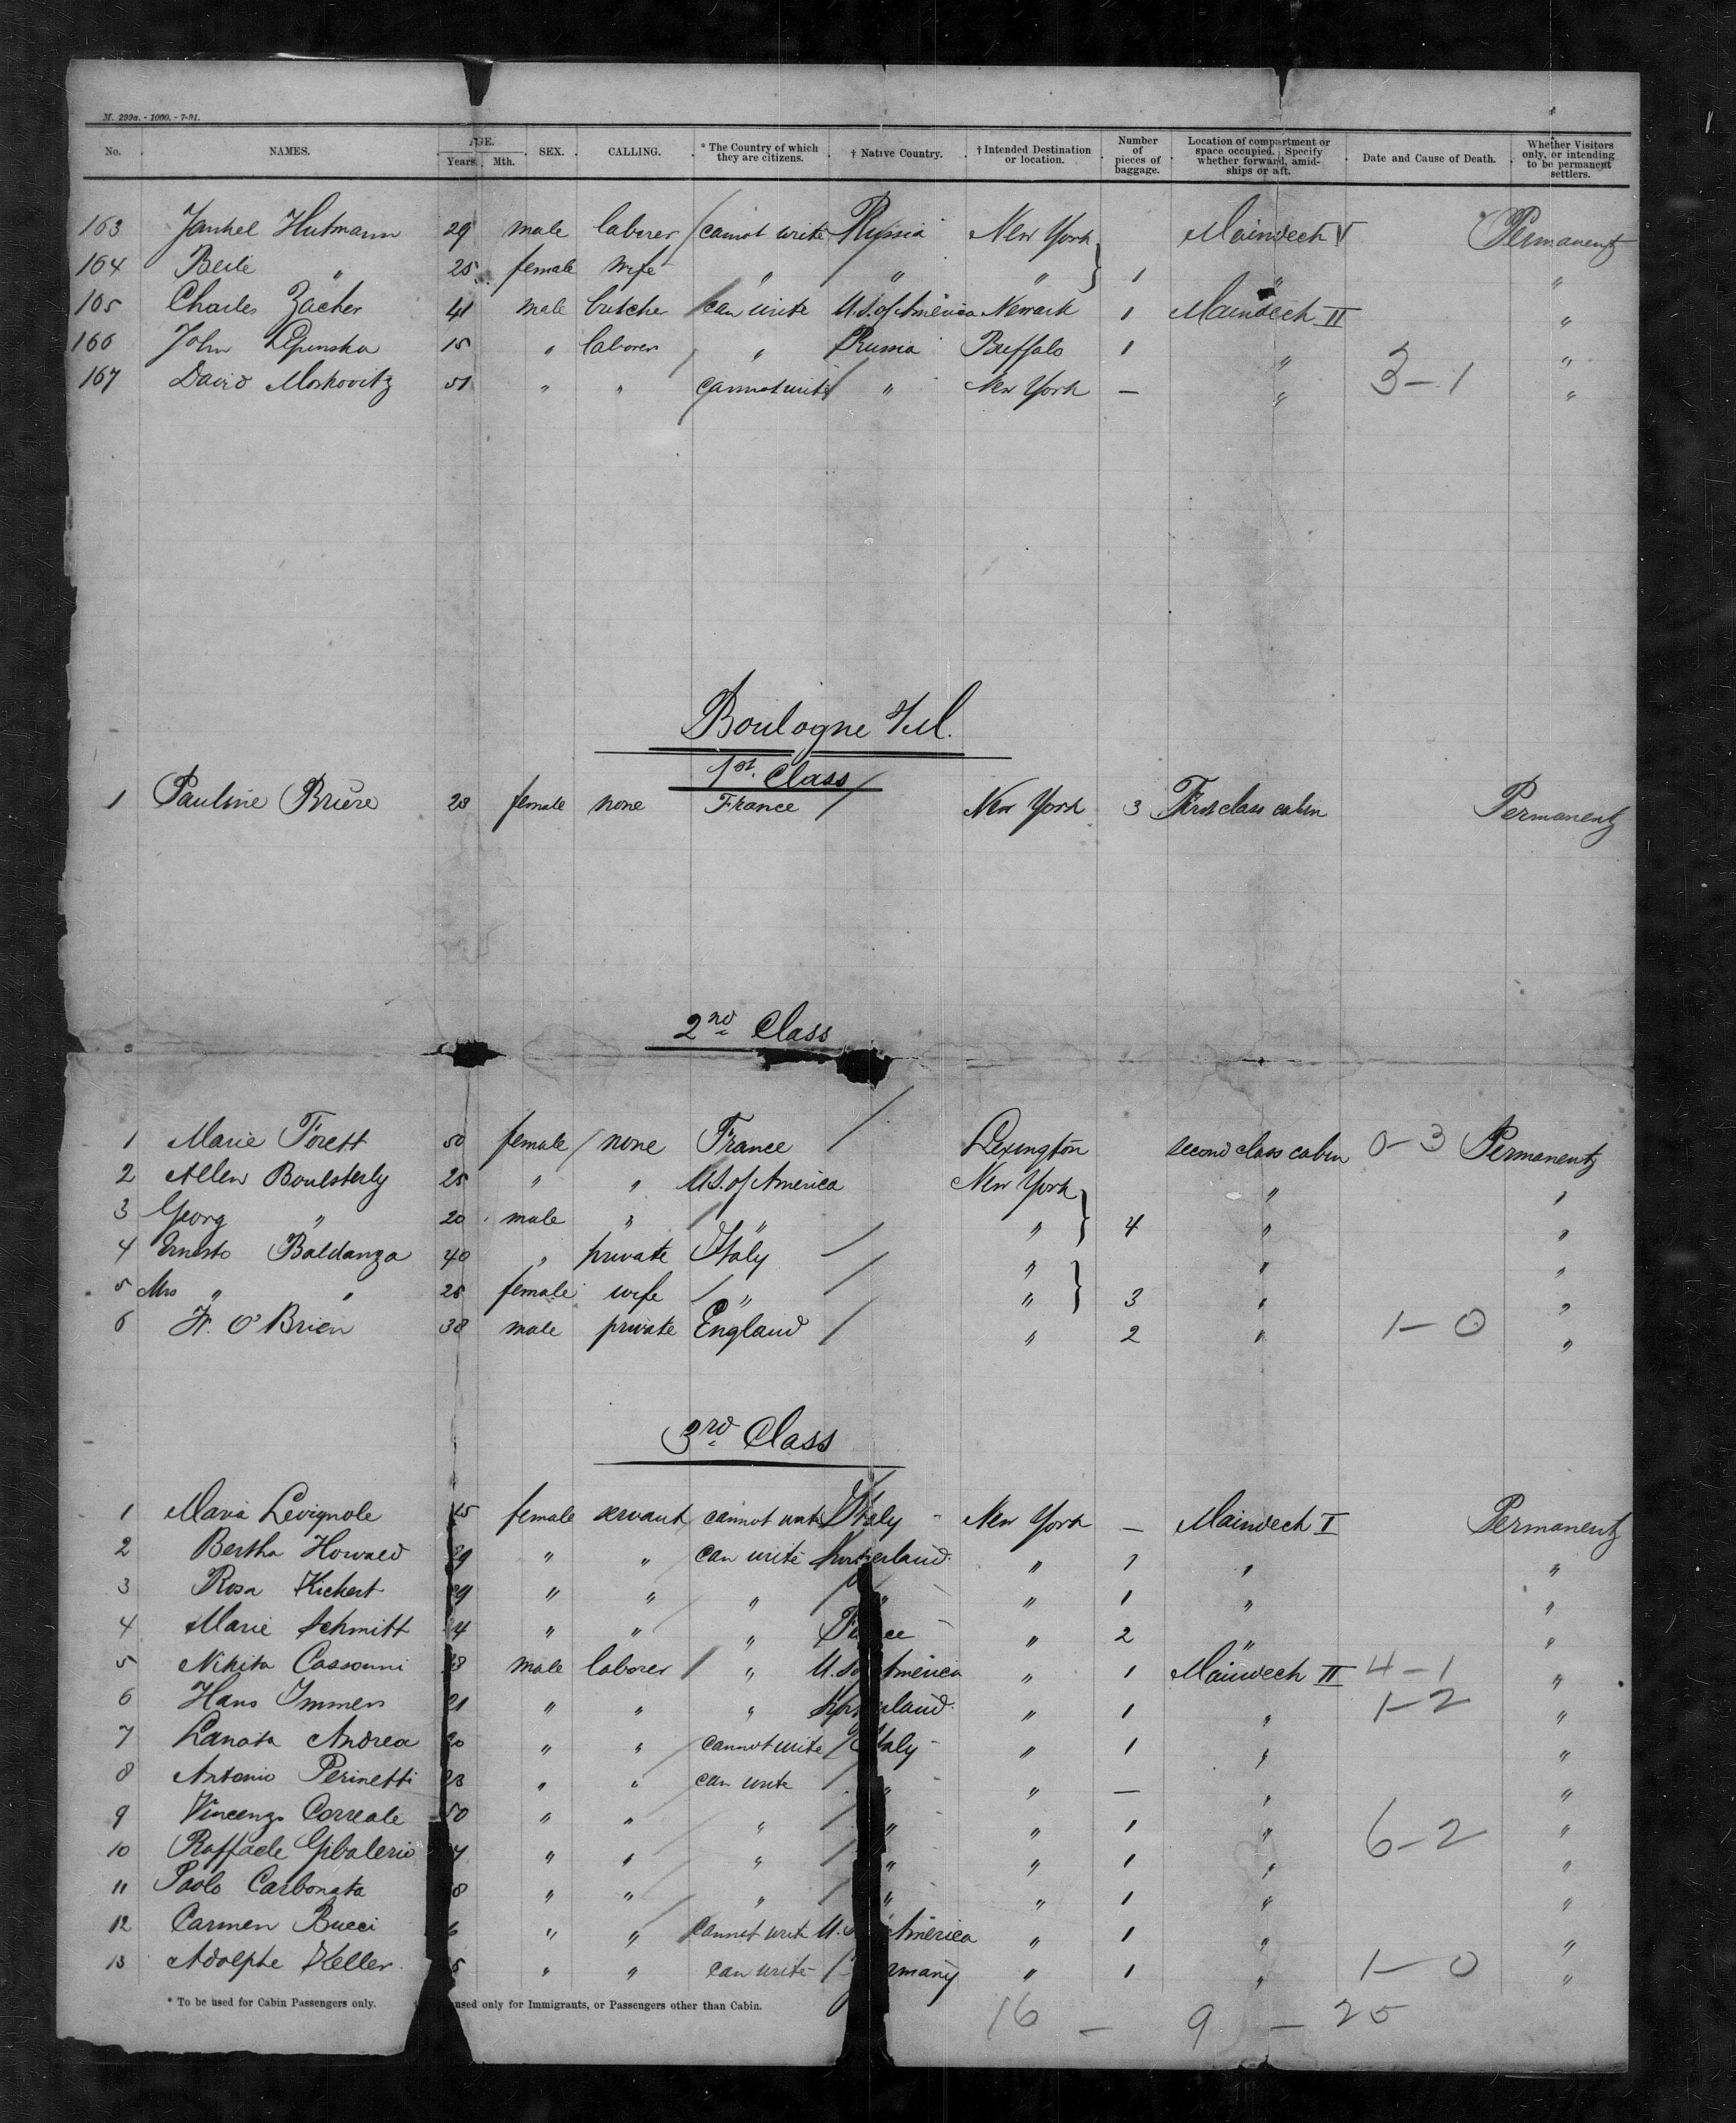 M. 299a. - 1000. - 7-91.
No. NAMES. AGE. Years. Mth. SEX. CALLING. * The Country of which they are citizens. † Native Country. † Intended Destination or location. Number of pieces of baggage. Location of compartment or space occupied. Specify whether forward, amidships or aft. Date and Cause of Death. Whether Visitors only, or intending to be permanent settlers.
163 Jankel Hutmann 29 male laborer cannot write Russia New York Maindeck V Permanent
164 Beile " 25 female wife " " " 1 " "
165 Charles Zacher 41 male butcher can write U.S. of America Newark 1 Maindeck II "
166 John 15 " laborer " Russia Buffalo 1 " "
167 David Moskovitz 51 " " cannot write " New York — " 3-1 "
Boulogne s/M.
1st. Class
1 Pauline Brière 28 female none France New York 3 First class cabin Permanent
2nd Class
1 Marie Forett 50 female none France Lexington second class cabin 0-3 Permanent
2 Allen Boulsterly 25 " " U.S. of America New York " "
3 Georg " 20 male " " " 4 " "
4 Ernesto Baldanza 40 " private Italy " " "
5 Mrs " " 26 female wife " " 3 " "
6 W. O'Brien 38 male private England " 2 " 1-0 "
3rd Class
1 Maria Levignole 25 female servant cannot write Italy New York — Maindeck I Permanent
2 Bertha Howald 29 " " can write " 1 " "
3 Rosa Kickert 29 " " " " " 1 " "
4 Marie Schmitt " " " France " 2 " "
5 Nikita Cassouni male laborer " U.S. of America " 1 Maindeck II 4-1 "
6 Hans Immer 21 " " " " 1 " 1-2 "
7 Lanata Andrea " " cannot write Italy " 1 " "
8 Antonio Perinetti " " can write " " — " "
9 Vincenzo Correale 50 " " " " " 1 " 6-2 "
10 Raffaele Gibalerio " " " " " 1 " "
11 Paolo Carbonata " " " " " 1 " "
12 Carmen Bucci " " cannot write U.S. America " 1 " "
13 Adolphe Keller " " can write Germany " 1 " 1-0 "
* To be used for Cabin Passengers only. used only for Immigrants, or Passengers other than Cabin.
16 — 9 — 25